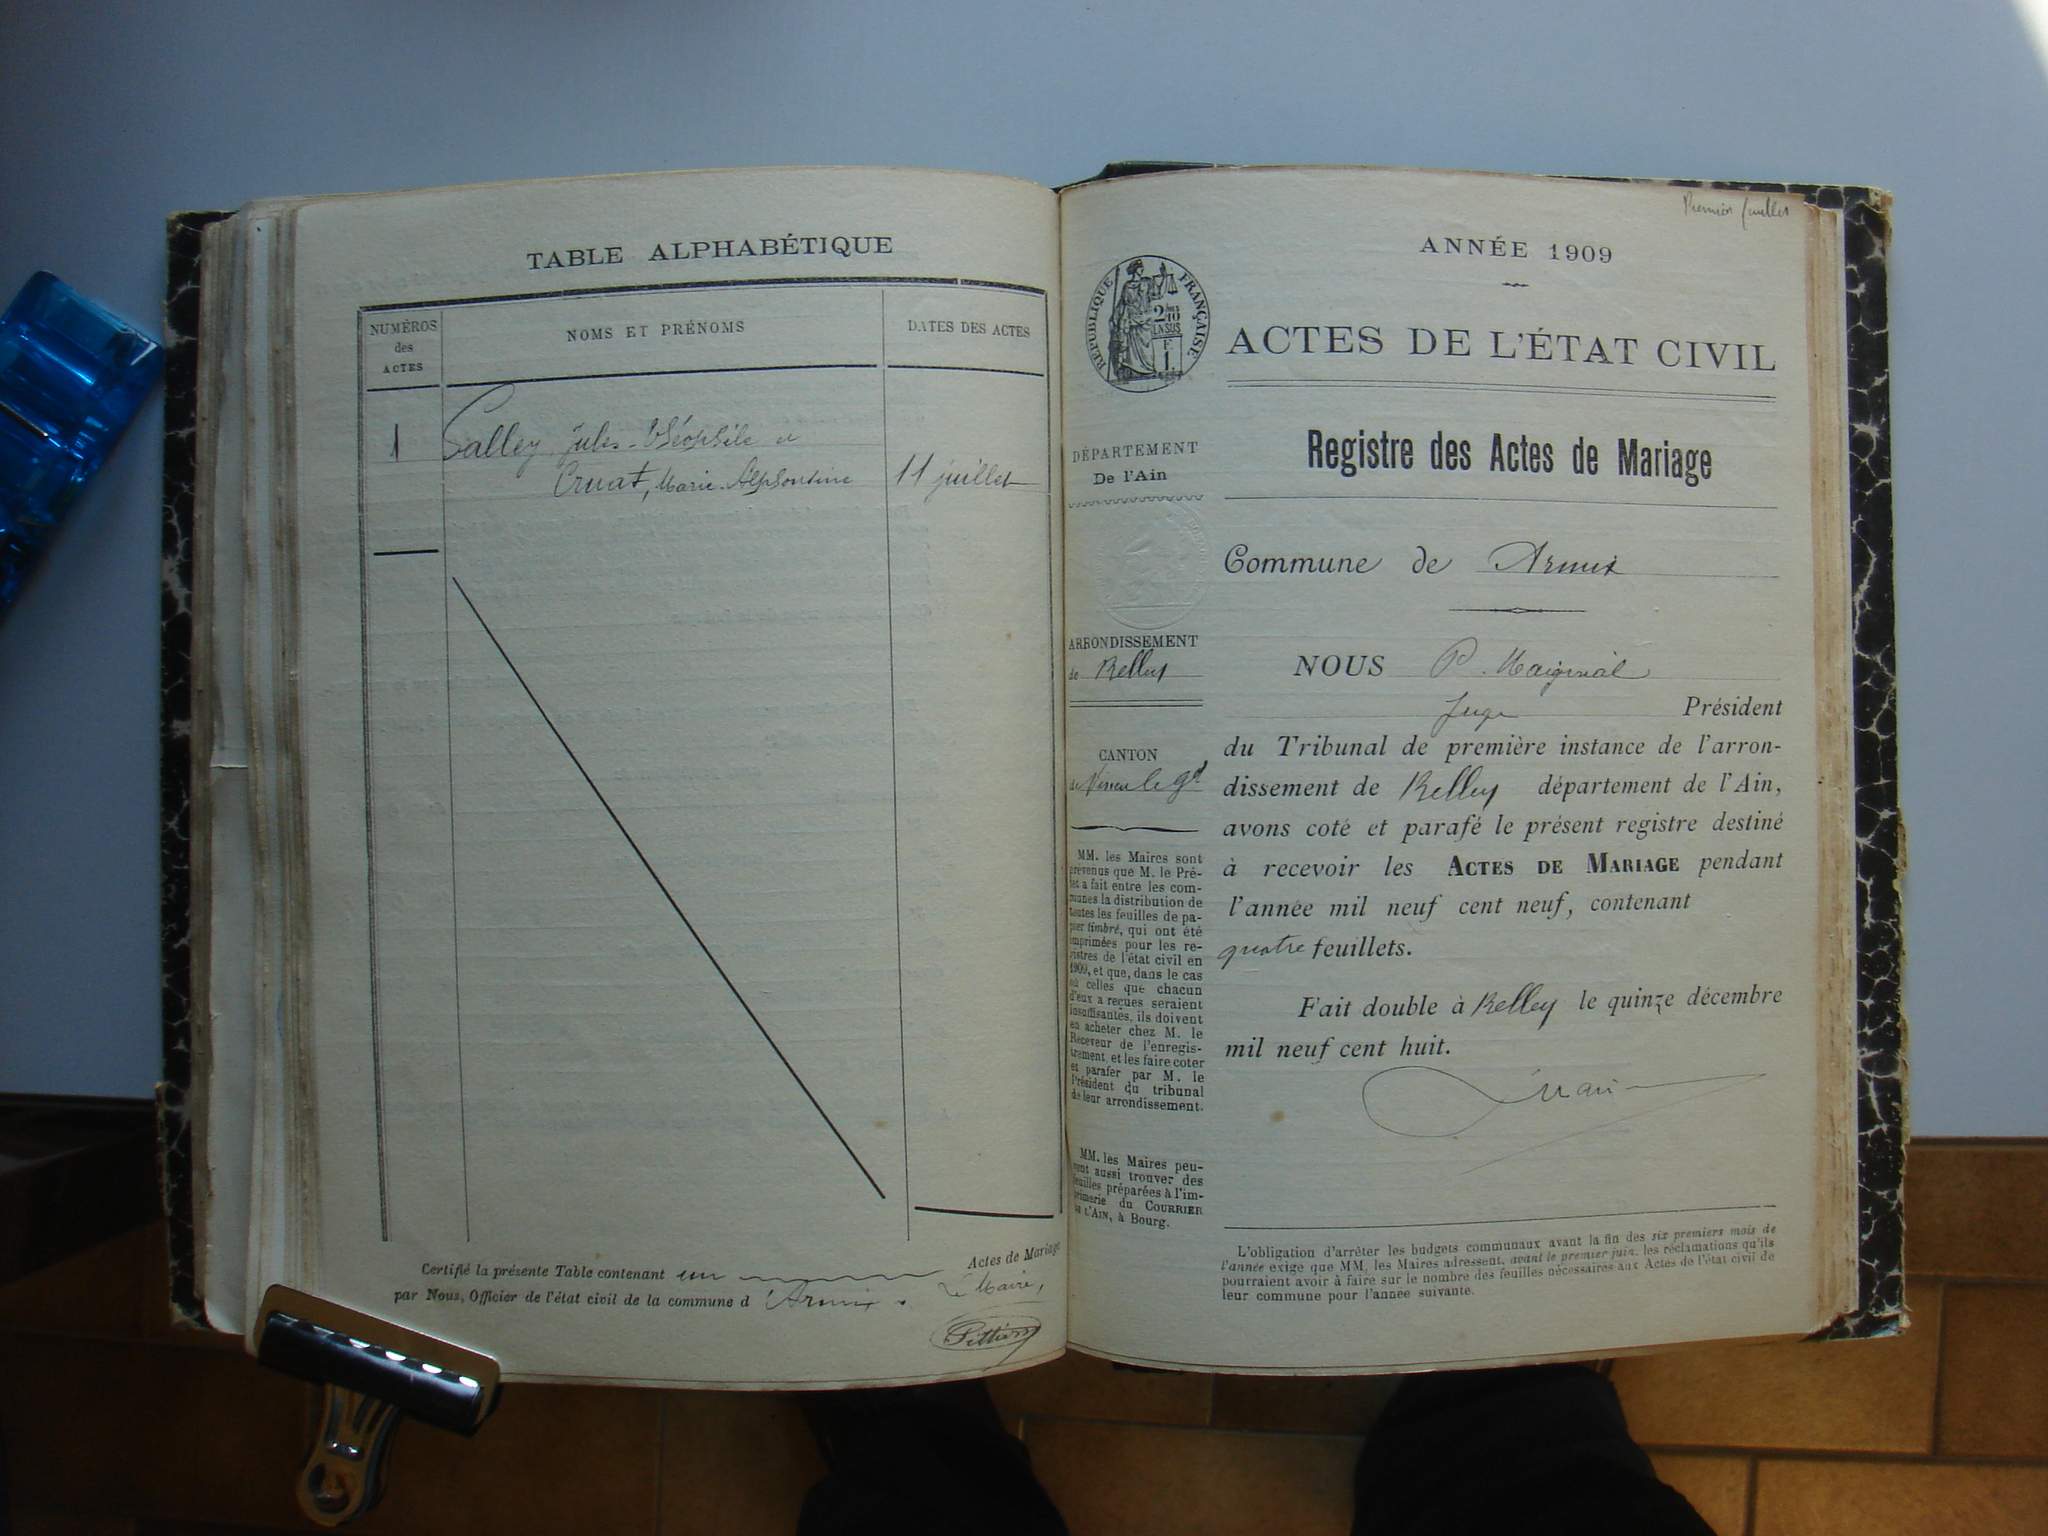 TABLE ALPHABÉTIQUE
NUMÉROS
des
ACTES
NOMS ET PRÉNOMS
DATES DES ACTES
1
Salley Jules-Théophile et
Cruat, Marie-Alphonsine
11 juillet
Certifié la présente Table contenant un Actes de Mariage
par Nous, Officier de l'état civil de la commune d'Armix.
Le Maire,
Premier feuillet
ANNÉE 1909
RÉPUBLIQUE FRANÇAISE
2/10 EN SUS
1 F.
ACTES DE L'ÉTAT CIVIL
Registre des Actes de Mariage
DÉPARTEMENT
De l'Ain
Commune de Armix
ARRONDISSEMENT
de Belley
CANTON
de Virieu le Gd
MM. les Maires sont
prévenus que M. le Pré-
fet a fait entre les com-
munes la distribution de
toutes les feuilles de pa-
pier timbré, qui ont été
imprimées pour les re-
gistres de l'état civil en
1909, et que, dans le cas
où celles que chacun
d'eux a reçues seraient
insuffisantes, ils doivent
en acheter chez M. le
Receveur de l'enregis-
trement, et les faire coter
et parafer par M. le
Président du tribunal
de leur arrondissement.
MM. les Maires peu-
vent aussi trouver des
feuilles préparées à l'im-
primerie du COURRIER
DE L'AIN, à Bourg.
NOUS P.
Juge Président
du Tribunal de première instance de l'arron-
dissement de Belley département de l'Ain,
avons coté et parafé le présent registre destiné
à recevoir les ACTES DE MARIAGE pendant
l'année mil neuf cent neuf, contenant
quatre feuillets.
Fait double à Belley le quinze décembre
mil neuf cent huit.
L'obligation d'arrêter les budgets communaux avant la fin des six premiers mois de
l'année exige que MM. les Maires adressent, avant le premier juin, les réclamations qu'ils
pourraient avoir à faire sur le nombre des feuilles nécessaires aux Actes de l'état civil de
leur commune pour l'année suivante.